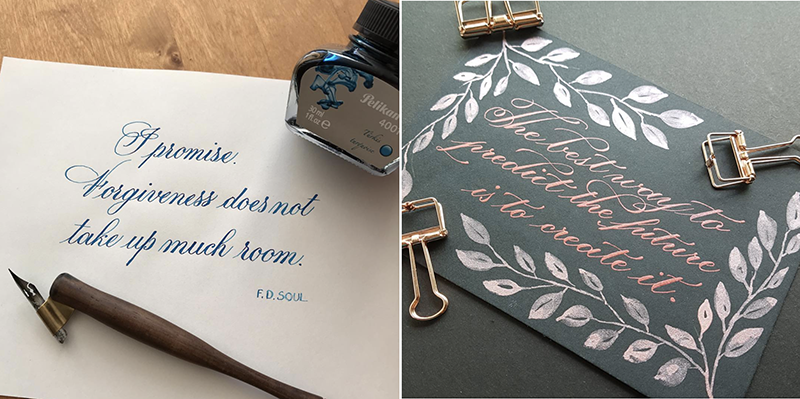 I promise.
Forgiveness does not
take up much room.
F.D. SOUL
Pelikan
4001
30 ml
1 fl.oz
The best way to
predict the future
is to create it.